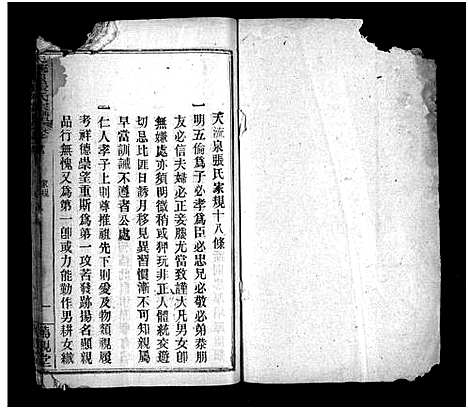 流泉張氏家規十八條
一明五倫為子必孝為臣必忠兄必敬必弟恭朋
友必信夫婦必正妾媵尤當致謹大凡男女卽
無嫌處亦須明徵稍或狎玩非正人體統交遊
切忌比匪日誘月移見異習慣漸不可知親屬
早當訓誡不遵者公處
一仁人孝子上尊推祖先下則愛及物類視履
考祥德崇望重斯為第一攻苦發跡揚名顯親
品行無愧又為第一卽或力能勤作男耕女織
家規
一
親堂